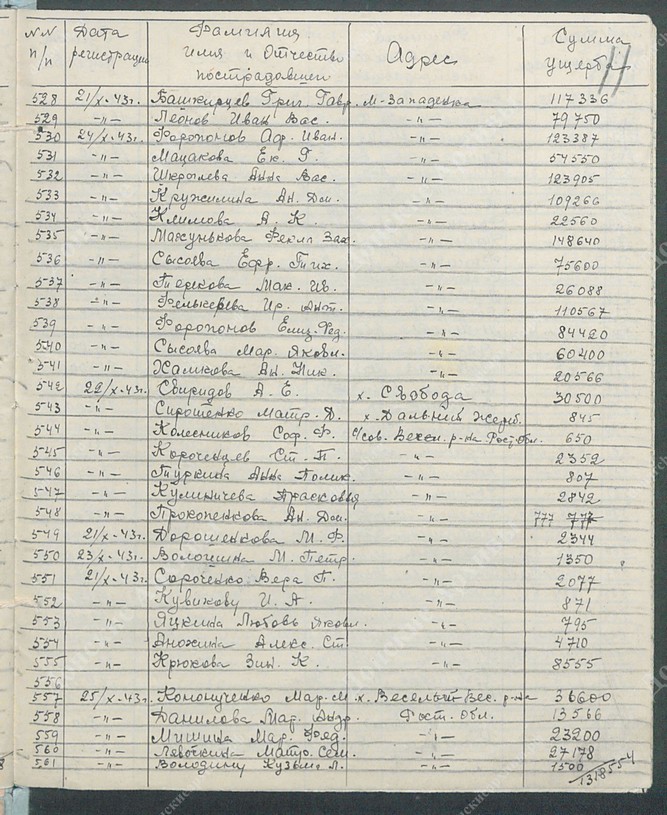 NN п/п Дата регистрации Фамилия имя и Отчество пострадавшей Адрес Сумма ущерба 11
528 21/X-43г. Башкирцев Григ. Гавр. М-Западенка 117336
529 -"- Леонов Иван Вас. -"- 79750
530 24/X-43г. Форопонов Аф. Иван. -"- 123387
531 -"- Мацакова Ек. Г. -"- 54550
532 -"- Шкрылева Анна Вас. -"- 123905
533 -"- Кружилина Ан. Дом. -"- 109266
534 -"- Климова А. К. -"- 22560
535 -"- Махунькова Фекла Зах. -"- 148640
536 -"- Сысоева Ефр. Тих. -"- 75600
537 -"- Теркова Мак. Ив. -"- 26088
538 -"- Ир. -"- 110567
539 -"- Форопонов Елиз. Фед. -"- 84420
540 -"- Сысоева Мар. Яковл. -"- 60400
541 -"- Халикова Ан. Ник. -"- 20566
542 22/X-43г. Свиридов А. Е. х. Свобода 30500
543 -"- Сирошенко Матр. Д. х. Дальний 845
544 -"- Колесников Соф. Ф. р-на Рост. Обл. 650
545 -"- Короченцев Ст. П. -"- 2352
546 -"- Туркина Анна Полик. -"- 807
547 -"- Кулиничева Прасковья -"- 2842
548 -"- Прокопенкова Ан. Дом. -"- 777 777
549 21/X-43г. Дорошенкова М. Ф. -"- 2344
550 23/X-43г. Волошина М. Петр. -"- 1350
551 21/X-43г. Сороченко Вера П. -"- 2077
552 -"- Кувикову И. А -"- 871
553 -"- Яцкина Любовь Яковл. -"- 795
554 -"- Аножина Алекс. Ст. -"- 4710
555 -"- Крюкова Зин. К. -"- 8555
556
557 25/X-43г. Кононученко Мар. М х. Веселый Вес. р-на 36600
558 -"- Данилова Мар. Андр. Рост. Обл. 13566
559 -"- Мишина Мар. Фед. -"- 23200
560 -"- Левочкина Матр. Сем. -"- 27178
561 -"- Володину Кузьма Л. -"- 1500
1318554